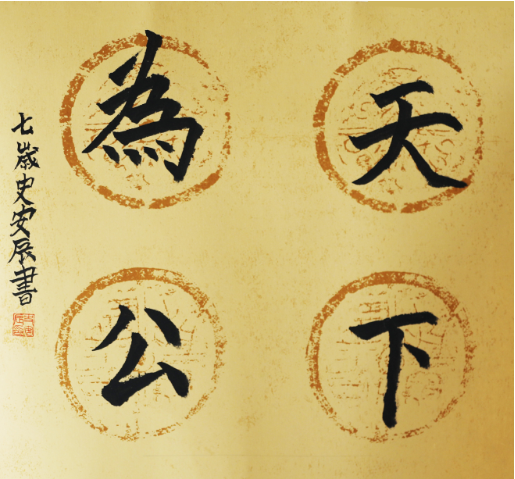 天下
為公
七歲史安辰書